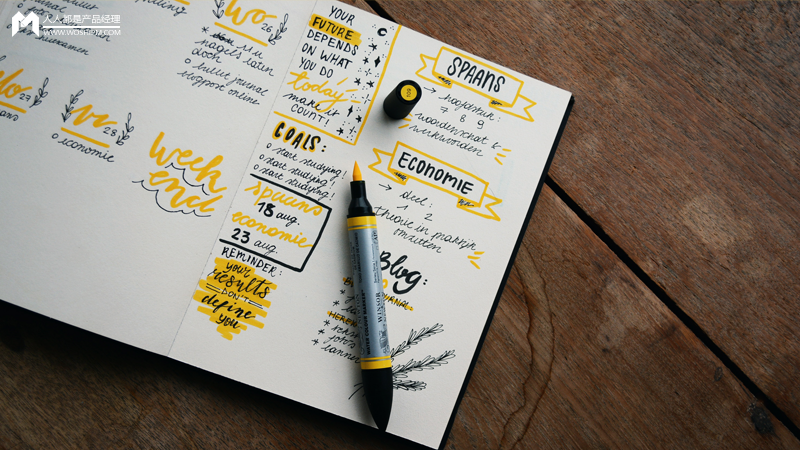 人人都是产品经理
WWW.WOSHIPM.COM
wo 26
nagels laten
doen
o bullet journal
blogpost online
27
vr 28
o economie
week
end
YOUR
FUTURE
DEPENDS
ON WHAT
YOU DO
today
make it
COUNT!
GOALS:
o start studying!
o start studying!
o start studying!
spaans
18 aug.
economie
23 aug.
REMINDER:
your
results
DON'T
define
you
SPAANS
→ hoofdstuk:
7 8 9
woordenschat &
werkwoorden
ECONOMIE
→ deel:
1 2
theorie in praktijk
omzetten
Blog:
WINSOR